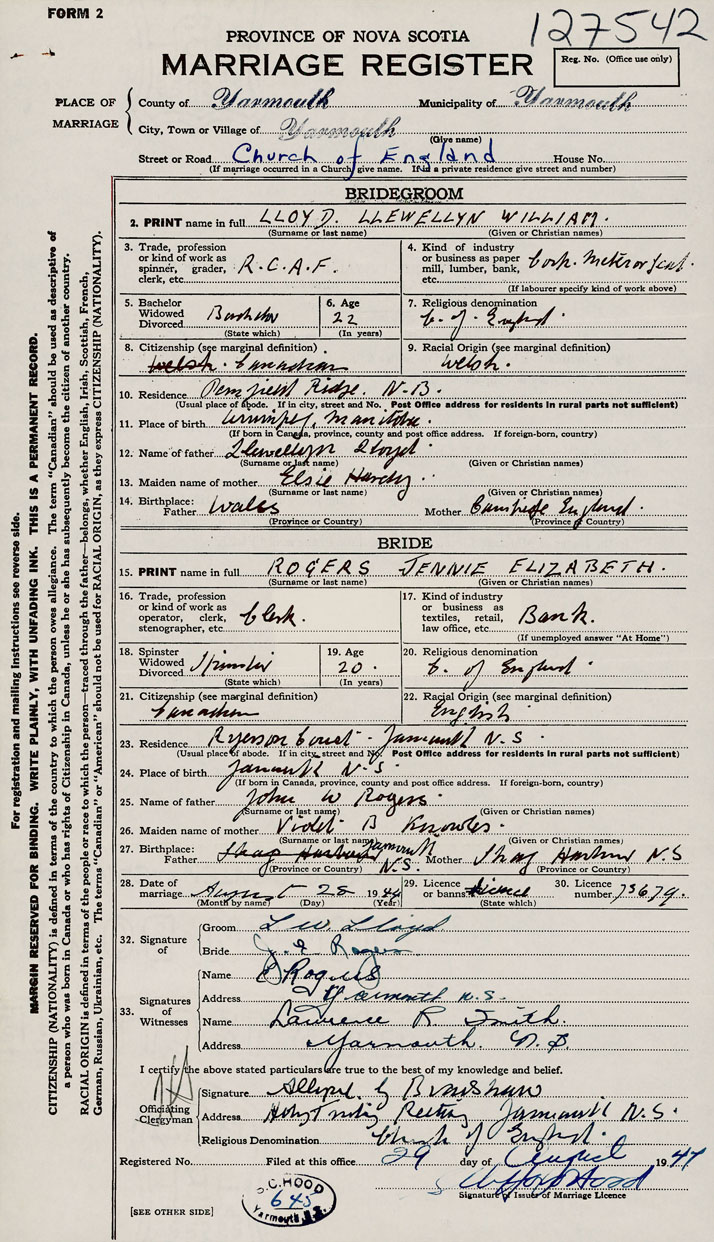 FORM 2
127542
PROVINCE OF NOVA SCOTIA
MARRIAGE REGISTER
Reg. No. (Office use only)
PLACE OF MARRIAGE
County of Yarmouth Municipality of Yarmouth
City, Town or Village of Yarmouth
(Give name)
Street or Road Church of England House No.
(If marriage occurred in a Church give name. If in a private residence give street and number)
BRIDEGROOM
2. PRINT name in full LLOYD. LLEWELLYN WILLIAM.
(Surname or last name) (Given or Christian names)
3. Trade, profession or kind of work as spinner, grader, clerk, etc. R.C.A.F.
4. Kind of industry or business as paper mill, lumber, bank, etc.
(If labourer specify kind of work above)
5. Bachelor Widowed Divorced Bachelor
(State which)
6. Age 22
(In years)
7. Religious denomination C. of England.
8. Citizenship (see marginal definition) Welsh. Canadian
9. Racial Origin (see marginal definition) Welsh.
10. Residence Pennfield Ridge. N.B.
(Usual place of abode. If in city, street and No. Post Office address for residents in rural parts not sufficient)
11. Place of birth Winnipeg, Manitoba.
(If born in Canada, province, county and post office address. If foreign-born, country)
12. Name of father Llewellyn Lloyd
(Surname or last name) (Given or Christian names)
13. Maiden name of mother Elsie Hardy
(Surname or last name) (Given or Christian names)
14. Birthplace: Father Wales Mother England.
(Province or Country) (Province or Country)
BRIDE
15. PRINT name in full ROGERS JENNIE ELIZABETH.
(Surname or last name) (Given or Christian names)
16. Trade, profession or kind of work as operator, clerk, stenographer, etc. Clerk.
17. Kind of industry or business as textiles, retail, law office, etc. Bank.
(If unemployed answer "At Home")
18. Spinster Widowed Divorced Spinster
(State which)
19. Age 20.
(In years)
20. Religious denomination C. of England.
21. Citizenship (see marginal definition) Canadian
22. Racial Origin (see marginal definition) English
23. Residence Ryerson Court - Yarmouth N.S.
(Usual place of abode. If in city, street and No. Post Office address for residents in rural parts not sufficient)
24. Place of birth Yarmouth N.S.
(If born in Canada, province, county and post office address. If foreign-born, country)
25. Name of father John W Rogers
(Surname or last name) (Given or Christian names)
26. Maiden name of mother Violet B Knowles
(Surname or last name) (Given or Christian names)
27. Birthplace: Father Shag Harbour Yarmouth N.S. Mother Shag Harbour N.S
(Province or Country) (Province or Country)
28. Date of marriage August 28 1944
(Month by name) (Day) (Year)
29. Licence or banns licence
(State which)
30. Licence number 73679.
32. Signature of
Groom L W Lloyd.
Bride J. E Rogers
33. Signatures of Witnesses
Name Rogers
Address Yarmouth N.S.
Name Lawrence R. Smith.
Address Yarmouth. N.S.
I certify the above stated particulars are true to the best of my knowledge and belief.
Officiating Clergyman
Signature
Address Holy Trinity Rectory Yarmouth N.S.
Religious Denomination Church of England.
Registered No. Filed at this office 29 day of August 1944
Signature of Issuer of Marriage Licence
S.C. HOOD
645
Yarmouth N.S.
[SEE OTHER SIDE]
For registration and mailing instructions see reverse side.
MARGIN RESERVED FOR BINDING. WRITE PLAINLY, WITH UNFADING INK. THIS IS A PERMANENT RECORD.
CITIZENSHIP (NATIONALITY) is defined in terms of the country to which the person owes allegiance. The term "Canadian" should be used as descriptive of
a person who was born in Canada or who has rights of Citizenship in Canada, unless he or she has subsequently become the citizen of another country.
RACIAL ORIGIN is defined in terms of the people or race to which the person—traced through the father—belongs, whether English, Irish, Scottish, French,
German, Russian, Ukrainian, etc. The terms "Canadian" or "American" should not be used for RACIAL ORIGIN, as they express CITIZENSHIP (NATIONALITY).